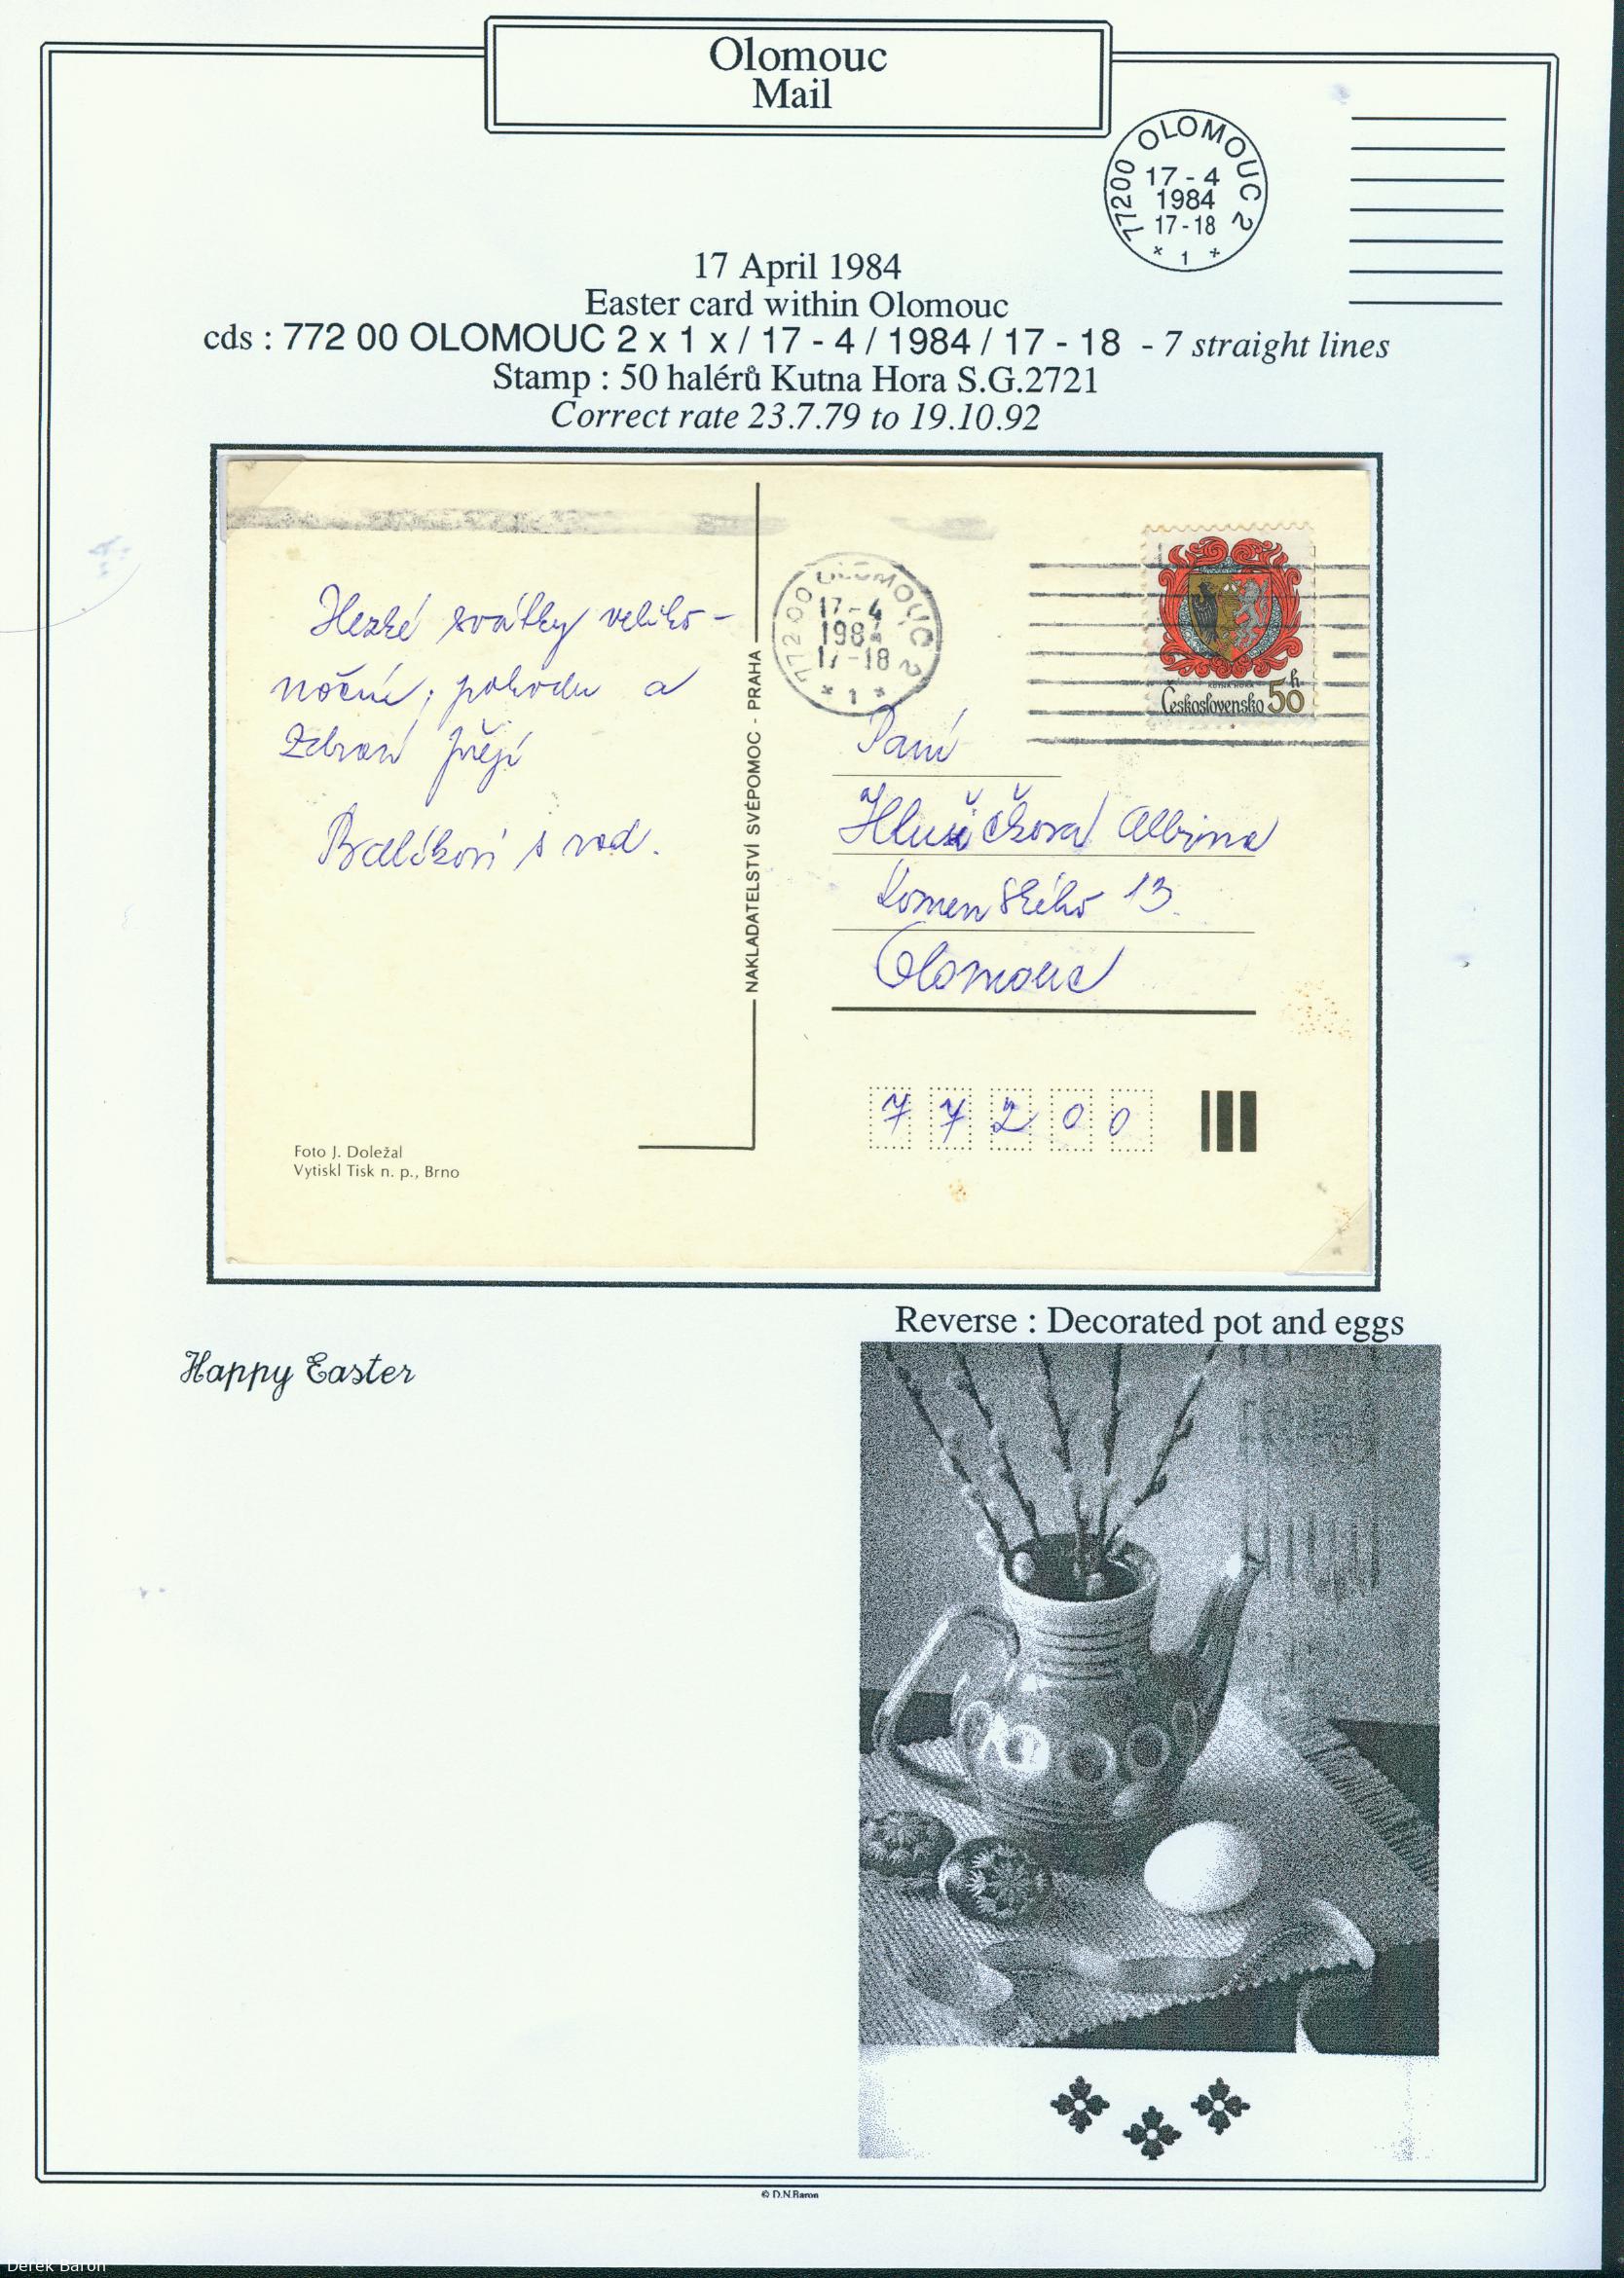 Olomouc
Mail
77200 OLOMOUC 2
17 - 4
1984
17-18
* 1 *
17 April 1984
Easter card within Olomouc
cds : 772 00 OLOMOUC 2 x 1 x / 17 - 4 / 1984 / 17 - 18 - 7 straight lines
Stamp : 50 halérů Kutna Hora S.G.2721
Correct rate 23.7.79 to 19.10.92
Hezké svátky veliko-
noční, pohodu a
zdraví přejí
s rod.
NAKLADATELSTVÍ SVÉPOMOC - PRAHA
772 00 OLOMOUC 2
17-4
1984
17-18
* 1 *
KUTNÁ HORA
Československo 50 h
Paní
Albina
Komenského 13
Olomouc
77200
Foto J. Doležal
Vytiskl Tisk n. p., Brno
Reverse : Decorated pot and eggs
Happy Easter
© D.N.Baron
Derek Baron